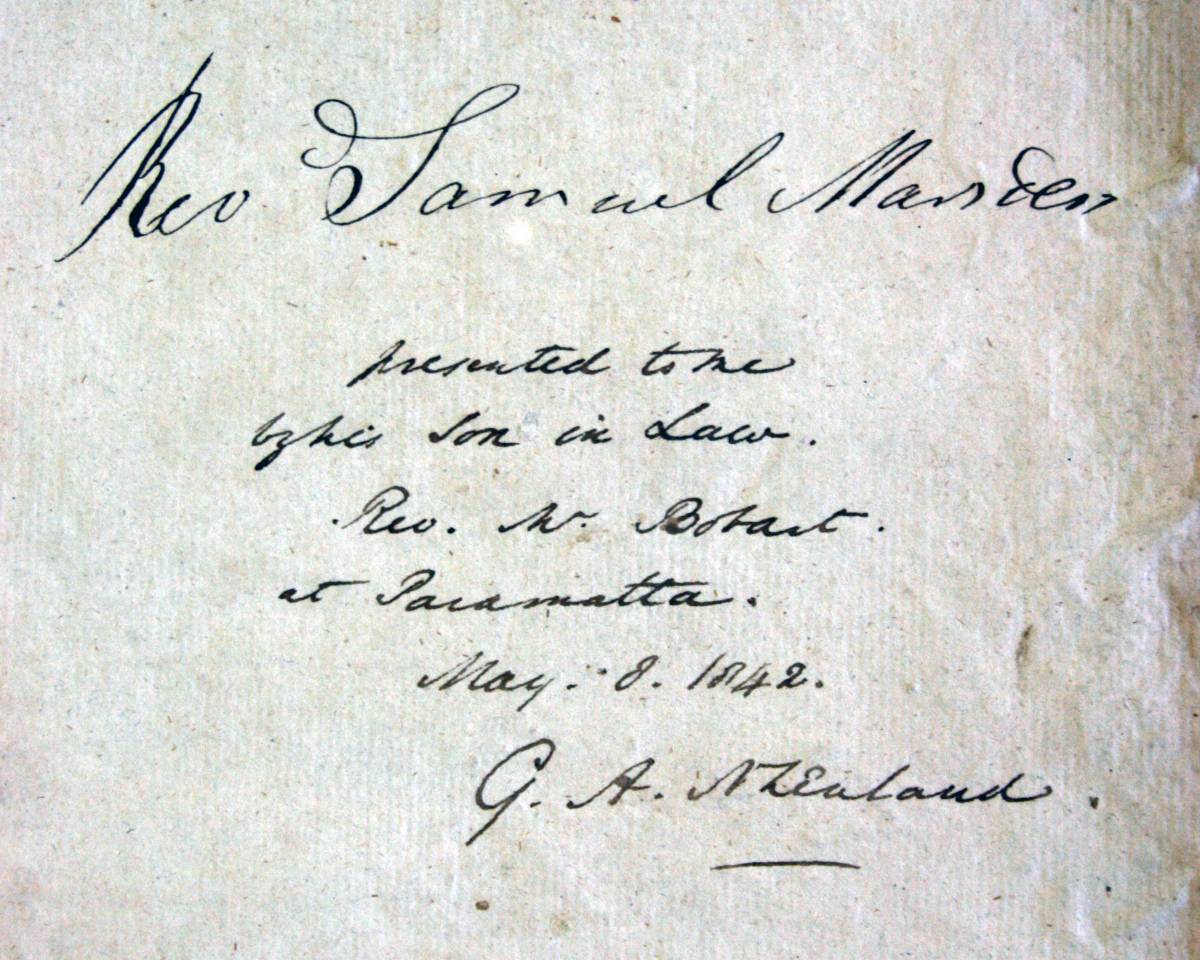 Rev Samuel Marsden
presented to me
by his Son in Law.
Rev. Mr. Bobart.
at Paramatta.
May. 8. 1842.
G. A. N Zealand.